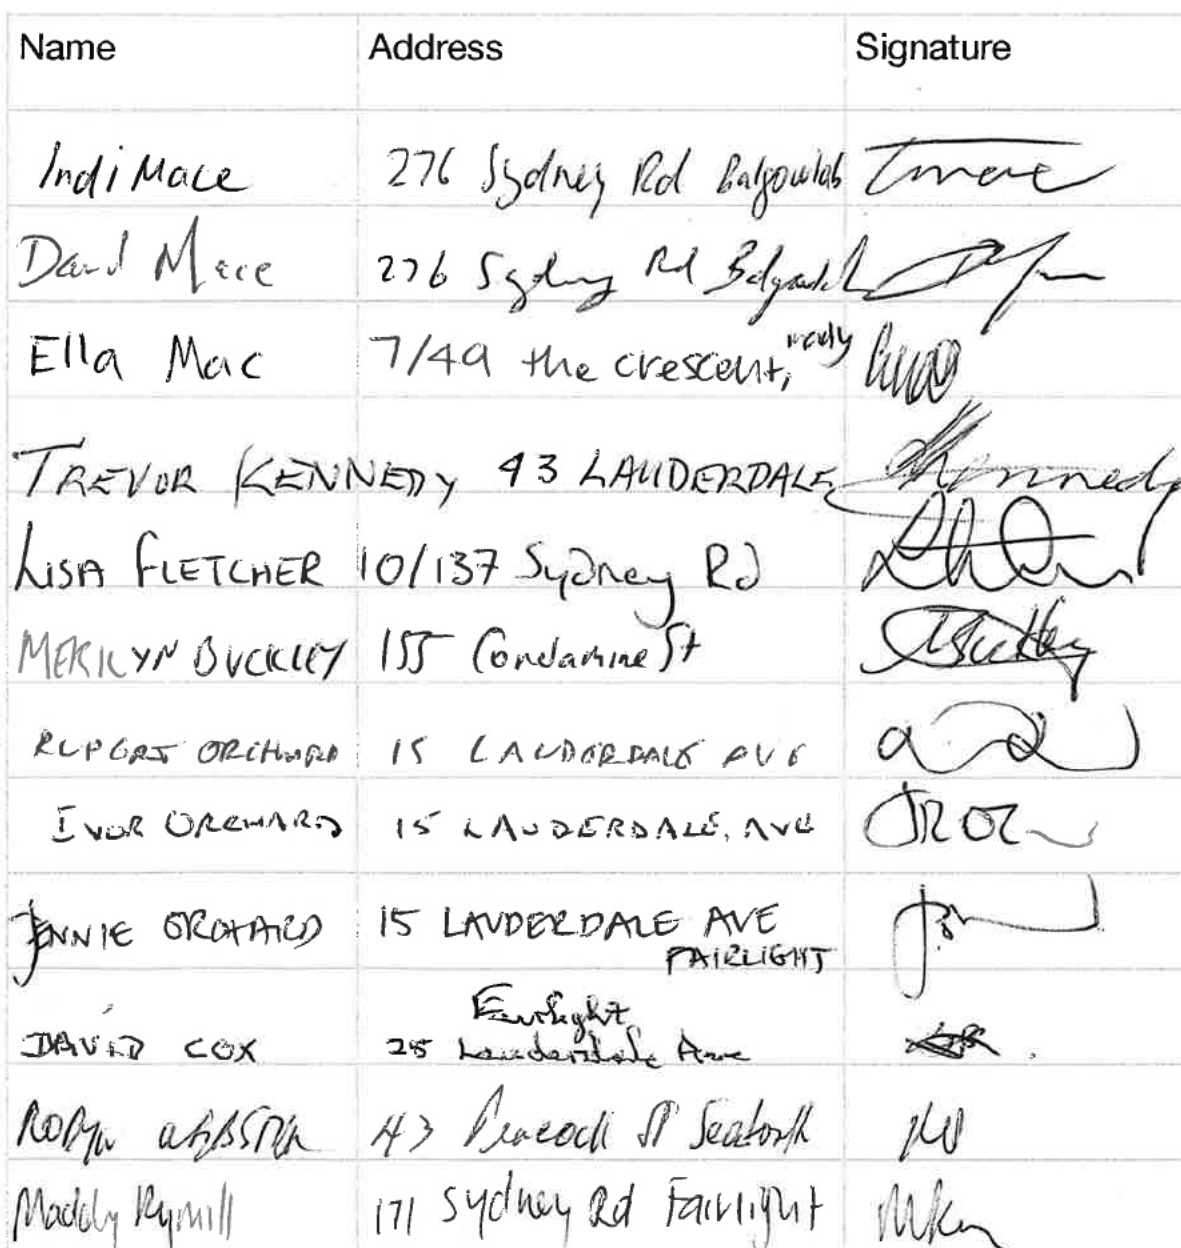 Name Address Signature
Indi Mace 276 Sydney Rd Balgowlah
David Mace 276 Sydney Rd Balgowlah
Ella Mac 7/49 the crescent,
TREVOR KENNEDY 43 LAUDERDALE Kennedy
LISA FLETCHER 10/137 Sydney Rd
MERILYN BUCKLEY 155 Condamine St
RUPERT ORCHARD 15 LAUDERDALE AVE
IVOR ORCHARD 15 LAUDERDALE, AVE
JENNIE ORCHARD 15 LAUDERDALE AVE
FAIRLIGHT
Fairlight
DAVID COX 25 Lauderdale Ave
ROBYN WEBSTER 43 Peacock St Seaforth
Maddy Rymill 171 Sydney Rd Fairlight